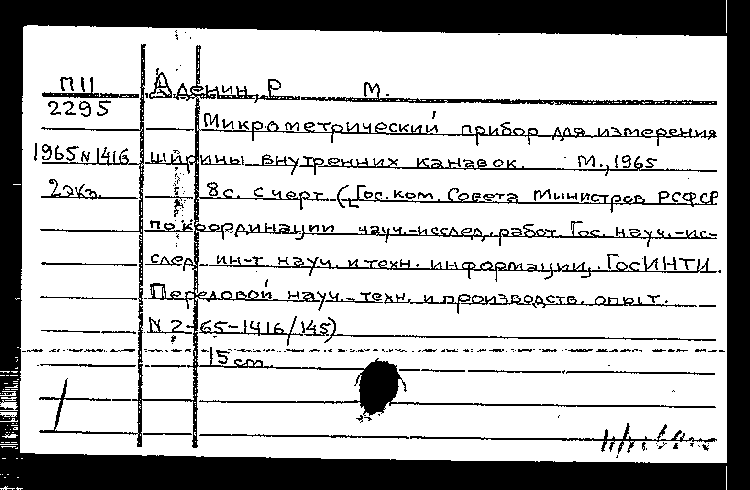 П11 Аленин, Р М.
2295
Микрометрический прибор для измерения
1965 N 1416 ширины внутренних канавок. М., 1965
2 экз. 8 с. с черт ([Гос. ком. Совета Министров РСФСР
по координации науч.-исслед. работ. Гос. науч.-ис-
след. ин-т науч. и техн. информации]. ГосИНТИ.
Передовой науч.-техн. и производств. опыт.
N 2-65-1416/145)
15 cm.